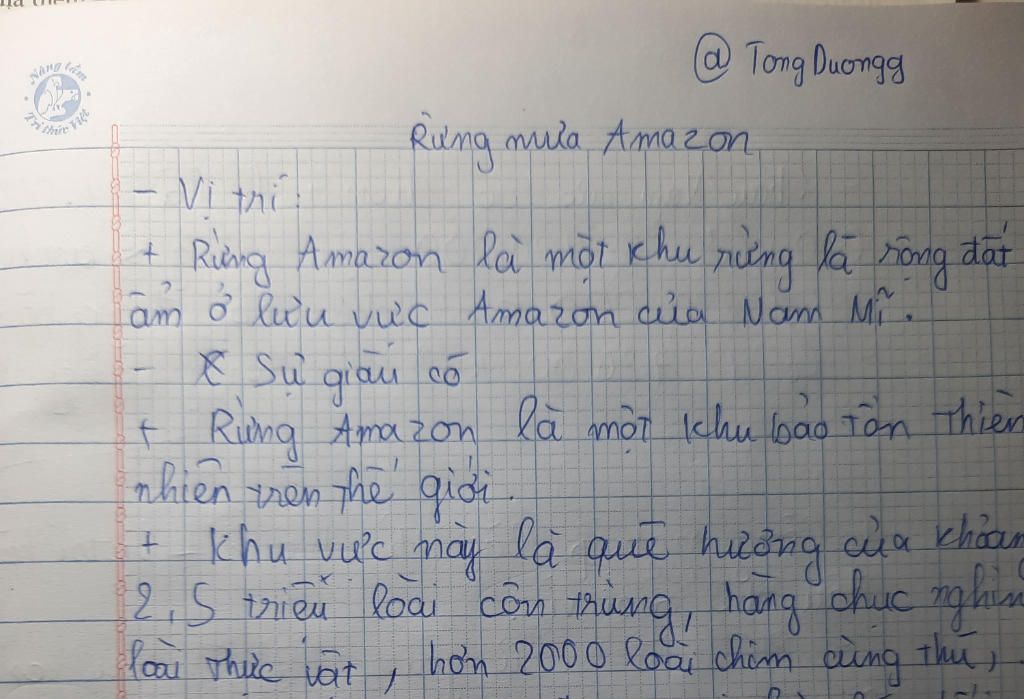 @ TongDuongg
Nâng tầm
Tri thức Việt
Rừng mưa Amazon
- Vị trí:
+ Rừng Amazon là một khu rừng lá rộng đất
ẩm ở lưu vực Amazon của Nam Mĩ.
- Sự giàu có
+ Rừng Amazon là một khu bảo tồn thiên
nhiên trên thế giới.
+ Khu vực này là quê hương của khoản
2,5 triệu loài côn trùng, hàng chục nghìn
loài thực vật, hơn 2000 loài chim cùng thú,